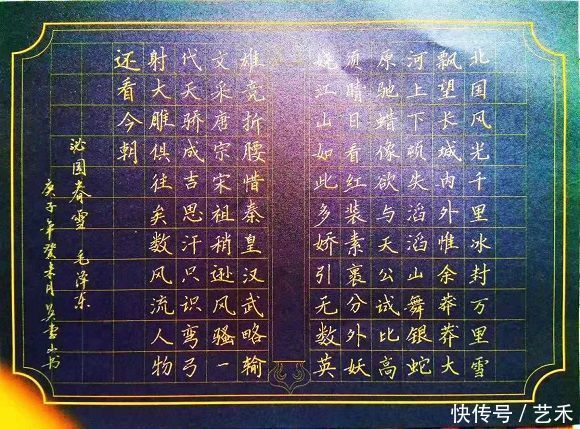 北国风光千里冰封万里雪
飘望长城内外惟余莽莽大
河上下顿失滔滔山舞银蛇
原驰蜡像欲与天公试比高
须晴日看红装素裹分外妖
娆江山如此多娇引无数英
雄竞折腰惜秦皇汉武略输
文采唐宗宋祖稍逊风骚一
代天骄成吉思汗只识弯弓
射大雕俱往矣数风流人物
还看今朝
沁园春雪 毛泽东
庚子年癸未月 书
快传号／艺禾